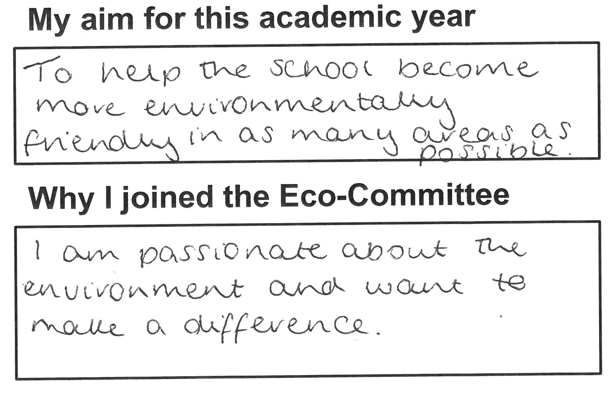 My aim for this academic year
To help the school become
more environmentally
friendly in as many areas as
possible.
Why I joined the Eco-Committee
I am passionate about the
environment and want to
make a difference.